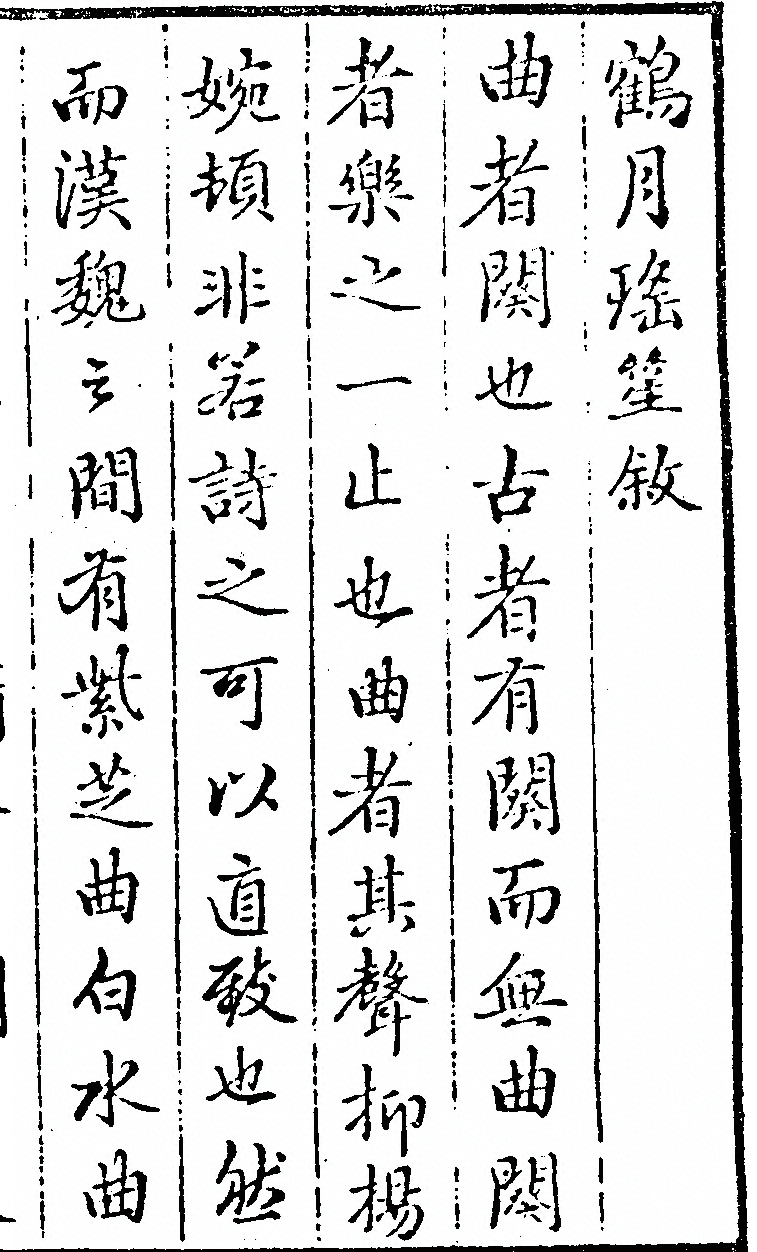 鶴月瑤笙敘
曲者闋也古者有闋而無曲闋
者樂之一止也曲者其聲抑揚
婉頓非若詩之可以直致也然
而漢魏之間有紫芝曲白水曲